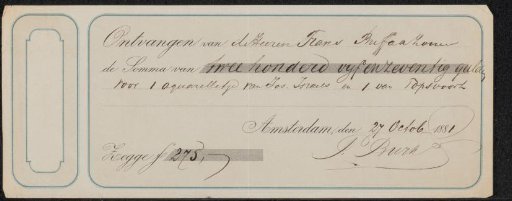 Ontvangen van de Heeren Frans Buffa & Zonen
de Somma van twee honderd vyf en zeventig gulden
voor 1 aquarelletje van Jos. Israels en 1 van Tepsvoort
Amsterdam, den 27 Octob 1881
Zegge f 275,-
J.